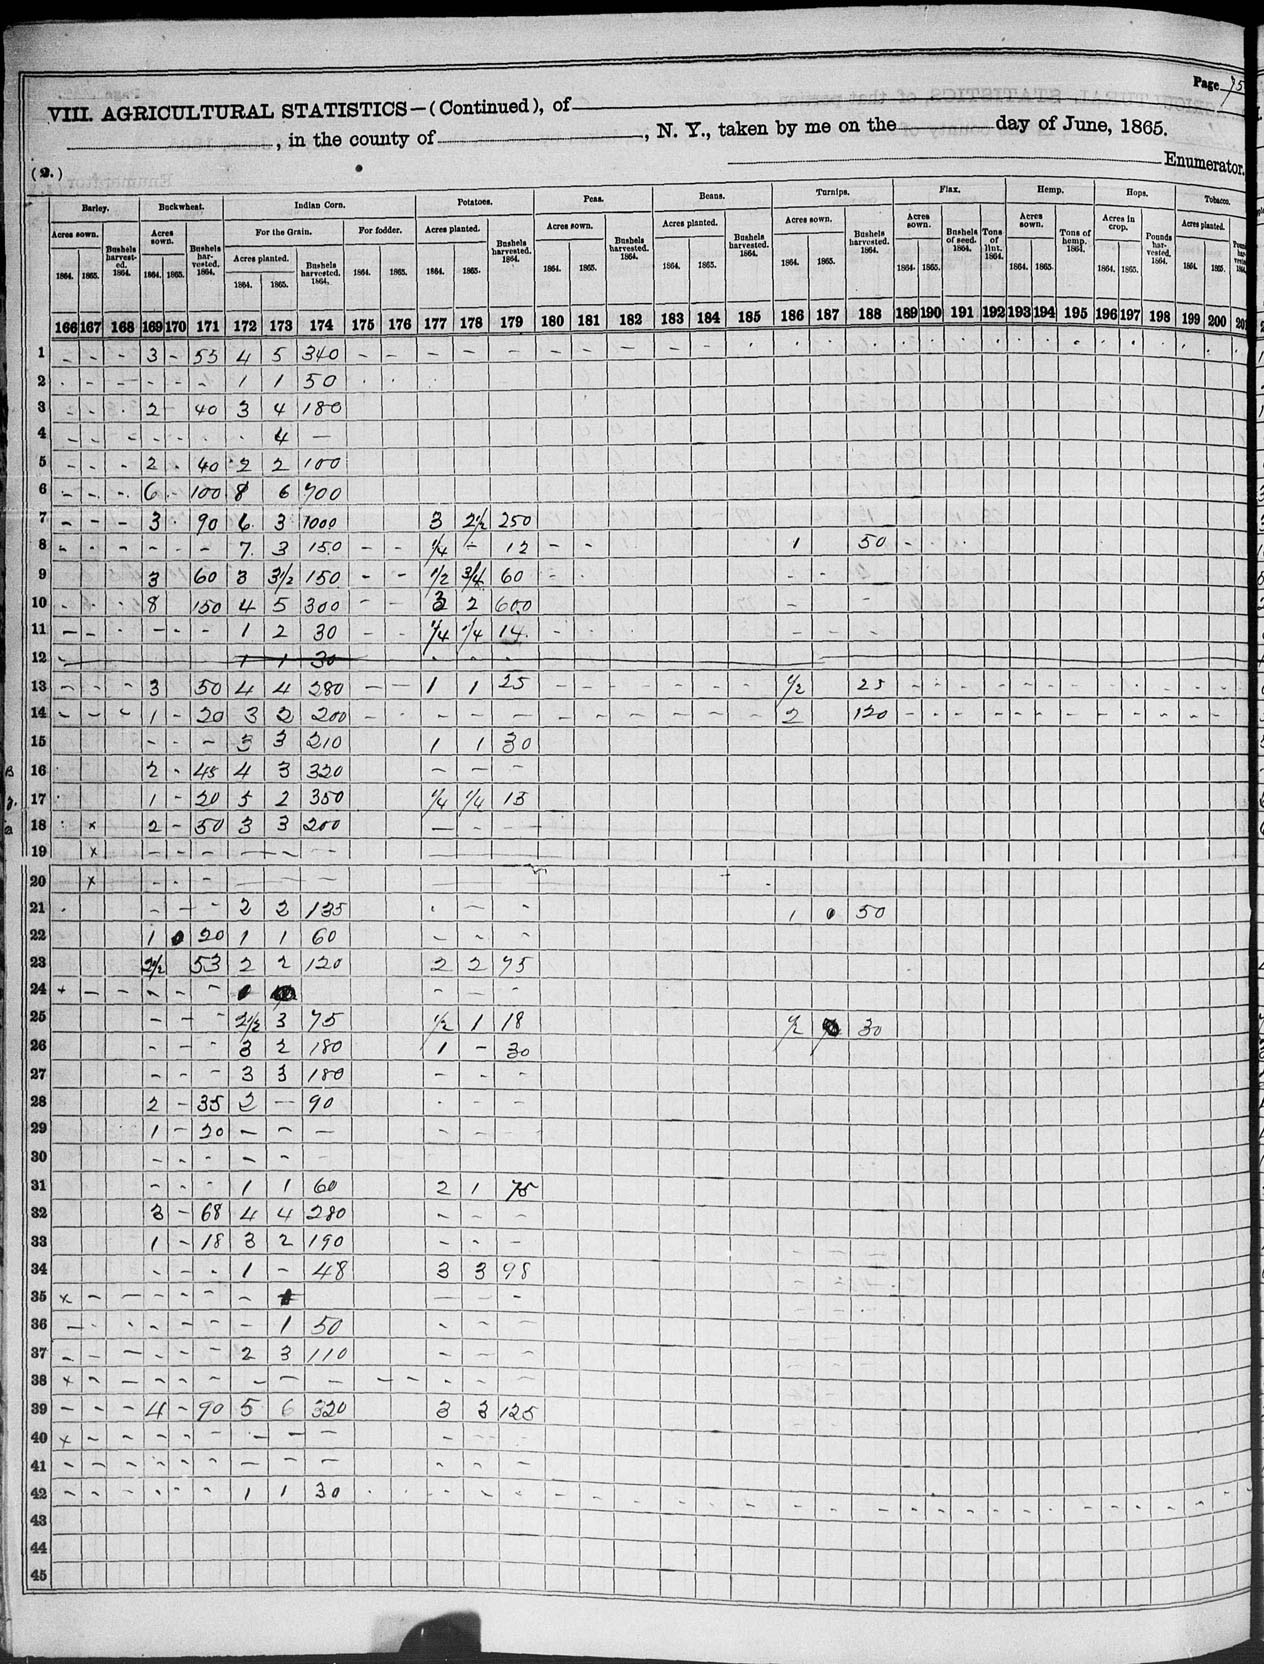 Page 75
VIII. AGRICULTURAL STATISTICS—(Continued), of
, in the county of , N. Y., taken by me on the day of June, 1865.
(2.) Enumerator.
Barley. Buckwheat. Indian Corn. Potatoes. Peas. Beans. Turnips. Flax. Hemp. Hops. Tobacco.
Acres sown. Bushels harvested. 1864. Acres sown. Bushels harvested. 1864. For the Grain. For fodder. Acres planted. Bushels harvested. 1864. Acres sown. Bushels harvested. 1864. Acres planted. Bushels harvested. 1864. Acres sown. Bushels harvested. 1864. Acres sown. Bushels of seed. 1864. Tons of lint. 1864. Acres sown. Tons of hemp. 1864. Acres in crop. Pounds harvested. 1864. Acres planted.
Acres planted. Bushels harvested. 1864.
1864. 1865. 1864. 1865. 1864. 1865. 1864. 1865. 1864. 1865. 1864. 1865. 1864. 1865. 1864. 1865. 1864. 1865. 1864. 1865. 1864. 1865. 1864. 1865.
166 167 168 169 170 171 172 173 174 175 176 177 178 179 180 181 182 183 184 185 186 187 188 189 190 191 192 193 194 195 196 197 198 199 200 201
1 - - - 3 - 55 4 5 340 - - - - - - - - - - -
2 - - - - - - 1 1 50
3 - - - 2 40 3 4 180
4 - - - - - - - 4 —
5 - - - 2 - 40 2 2 100
6 - - - 6 - 100 8 6 700
7 - - - 3 - 90 6 3 1000 3 2½ 250
8 - - - - - - 7 3 150 - - ¼ - 12 - - 1 50 -
9 3 60 3 3½ 150 - - ½ ¾ 60 - - - -
10 - - - 8 150 4 5 300 - - 3 2 600 - -
11 - - - - - - 1 2 30 - - ¼ ¼ 14 - - - - -
12 1 1 30
13 - - - 3 50 4 4 280 - - 1 1 25 - - - - - - ½ 25 - - - - - - - - - - - -
14 - - - 1 - 20 3 2 200 - - - - - - - - - - - 2 120 - - - - - - - - - - -
15 - - - 3 3 210 1 1 30
16 2 - 45 4 3 320 - - -
17 1 - 20 5 2 350 ¼ ¼ 15
18 x 2 - 50 3 3 200 - - -
19 x - - - - - -
20 x - - - - - -
21 - - - 2 2 135 - - - 1 0 50
22 1 0 20 1 1 60 - - -
23 2½ 53 2 2 120 2 2 75
24 + - - - - - - - -
25 - - - 2½ 3 75 ½ 1 18 ½ 30
26 - - - 3 2 180 1 - 30
27 - - - 3 3 180 - - -
28 2 - 35 2 - 90 - - -
29 1 - 20 - - - - - -
30 - - - - - -
31 - - - 1 1 60 2 1 75
32 3 - 68 4 4 280 - - -
33 1 - 18 3 2 190 - - -
34 - - - 1 - 48 3 3 98
35 x - - - - - - - - -
36 - - - - - - - 1 50 - - -
37 - - - - - - 2 3 110 - - -
38 x - - - - - - - - - - - - -
39 - - - 4 - 90 5 6 320 3 3 125
40 x - - - - - - - - -
41 - - - - - - - - - - - -
42 - - - - - - 1 1 30 - - - - - - - - - - - - - - - - - - - - - - - - - -
43
44
45